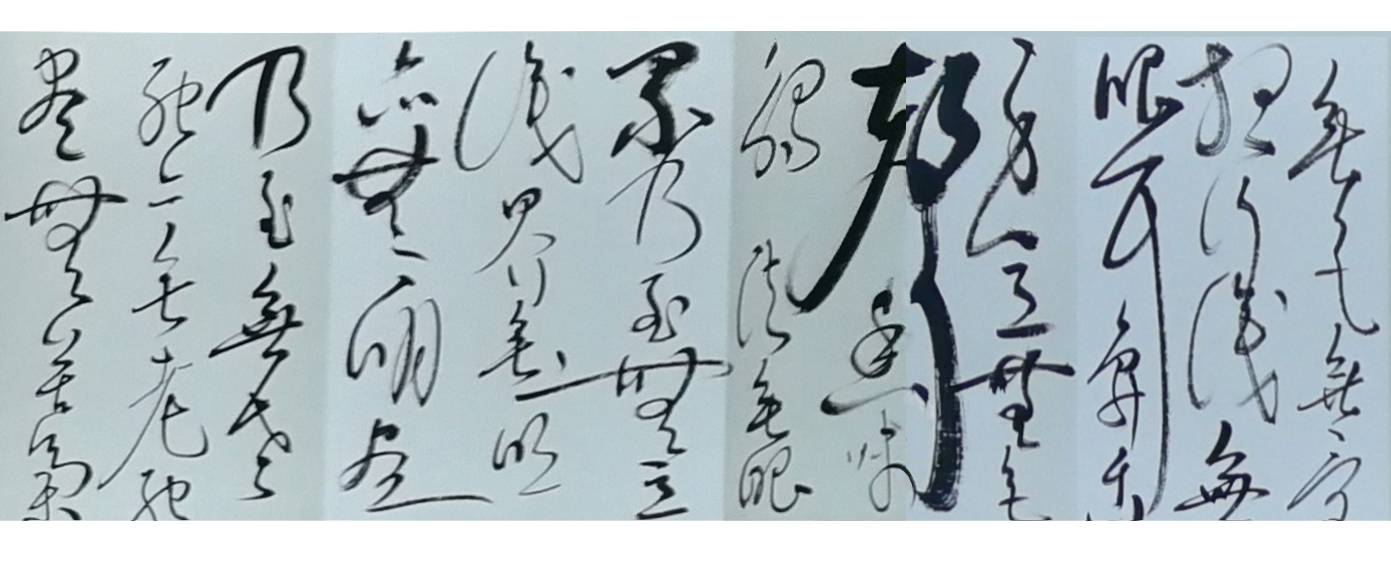 無色無受
想行識無
眼耳鼻舌
身意無色
聲香味
觸法無眼
界乃至無意
識界無無明
亦無無明盡
乃至無老
死亦無老死
盡無苦集